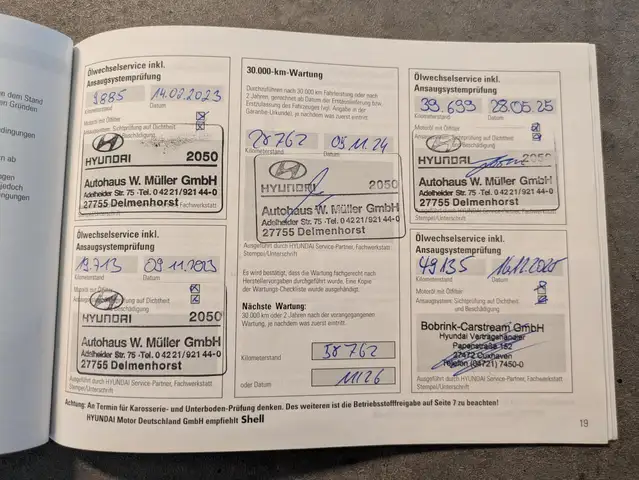 dem Stand
Gründen
dingungen
ab
ngen
jedoch
ingungen
Ölwechselservice inkl.
Ansaugsystemprüfung
9885 14.02.2023
Kilometerstand Datum
Motoröl mit Ölfilter
Ansaugsystem: Sichtprüfung auf Dichtheit
und Beschädigung
HYUNDAI 2050
Autohaus W. Müller GmbH
Adelheider Str. 75 · Tel. 0 42 21/921 44-0
27755 Delmenhorst
Fachwerkstatt
Stempel/Unterschrift
Ölwechselservice inkl.
Ansaugsystemprüfung
19.713 09.11.2023
Kilometerstand Datum
Motoröl mit Ölfilter
Ansaugsystem: Sichtprüfung auf Dichtheit
und Beschädigung
HYUNDAI 2050
Autohaus W. Müller GmbH
Adelheider Str. 75 · Tel. 0 42 21/921 44-0
27755 Delmenhorst
Ausgeführt durch HYUNDAI Service-Partner, Fachwerkstatt
Stempel/Unterschrift
30.000-km-Wartung
Durchzuführen nach 30.000 km Fahrleistung oder nach
2 Jahren, gerechnet ab Datum der Erstauslieferung bzw.
Erstzulassung des Fahrzeuges (vgl. Angabe in der
Garantie-Urkunde), je nachdem was zuerst eintritt.
28762 09.11.24
Kilometerstand Datum
HYUNDAI 2050
Autohaus W. Müller GmbH
Adelheider Str. 75 · Tel. 0 42 21/921 44-0
27755 Delmenhorst
Ausgeführt durch HYUNDAI Service-Partner, Fachwerkstatt
Stempel/Unterschrift
Es wird bestätigt, dass die Wartung fachgerecht nach
Herstellervorgaben durchgeführt wurde. Eine Kopie
der Wartungs-Checkliste wurde ausgehändigt.
Nächste Wartung:
30.000 km oder 2 Jahre nach der vorangegangenen
Wartung, je nachdem was zuerst eintritt.
Kilometerstand 58762
oder Datum 11/26
Ölwechselservice inkl.
Ansaugsystemprüfung
39.699 28.05.25
Kilometerstand Datum
Motoröl mit Ölfilter
HYUNDAI 2050
Autohaus W. Müller GmbH
Adelheider Str. 75 · Tel. 0 42 21/921 44-0
27755 Delmenhorst
Stempel/Unterschrift
Ölwechselservice inkl.
Ansaugsystemprüfung
49135 16.12.2025
Kilometerstand Datum
Motoröl mit Ölfilter
Ansaugsystem: Sichtprüfung auf Dichtheit
und Beschädigung
Bobrink-Carstream GmbH
Hyundai Vertragshändler
Papenstraße 152
27472 Cuxhaven
Telefon (04721) 7450-0
Ausgeführt durch HYUNDAI Service-Partner, Fachwerkstatt
Stempel/Unterschrift
Achtung: An Termin für Karosserie- und Unterboden-Prüfung denken. Des weiteren ist die Betriebsstofffreigabe auf Seite 7 zu beachten!
HYUNDAI Motor Deutschland GmbH empfiehlt Shell
19